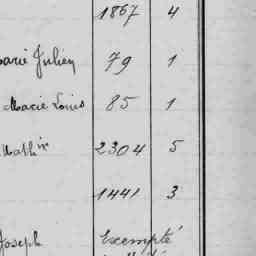 1867 4
arie Julien 79 1
Marie Louis 85 1
Math in 2304 5
1441 3
Joseph Exempté